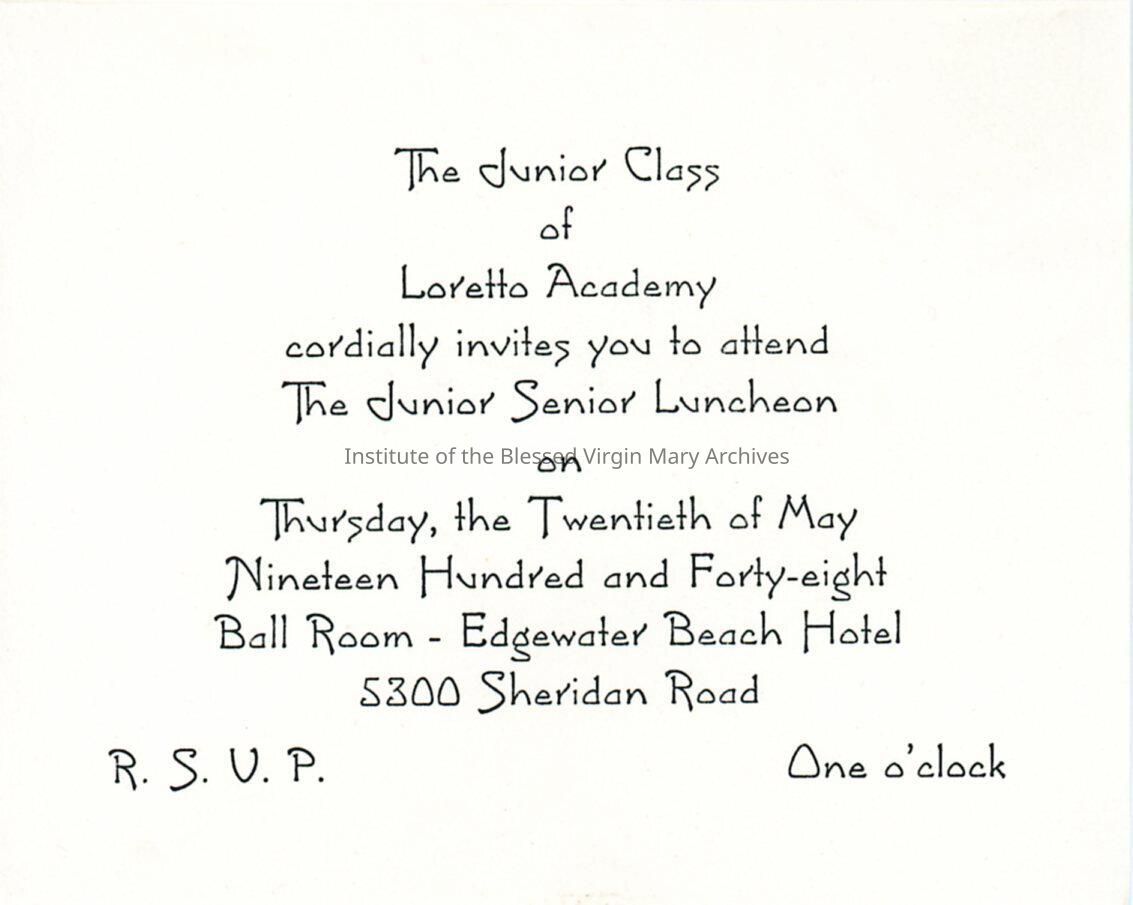 The Junior Class
of
Loretto Academy
cordially invites you to attend
The Junior Senior Luncheon
Institute of the Blessed Virgin Mary Archives
on
Thursday, the Twentieth of May
Nineteen Hundred and Forty-eight
Ball Room - Edgewater Beach Hotel
5300 Sheridan Road
R. S. V. P.
One o'clock